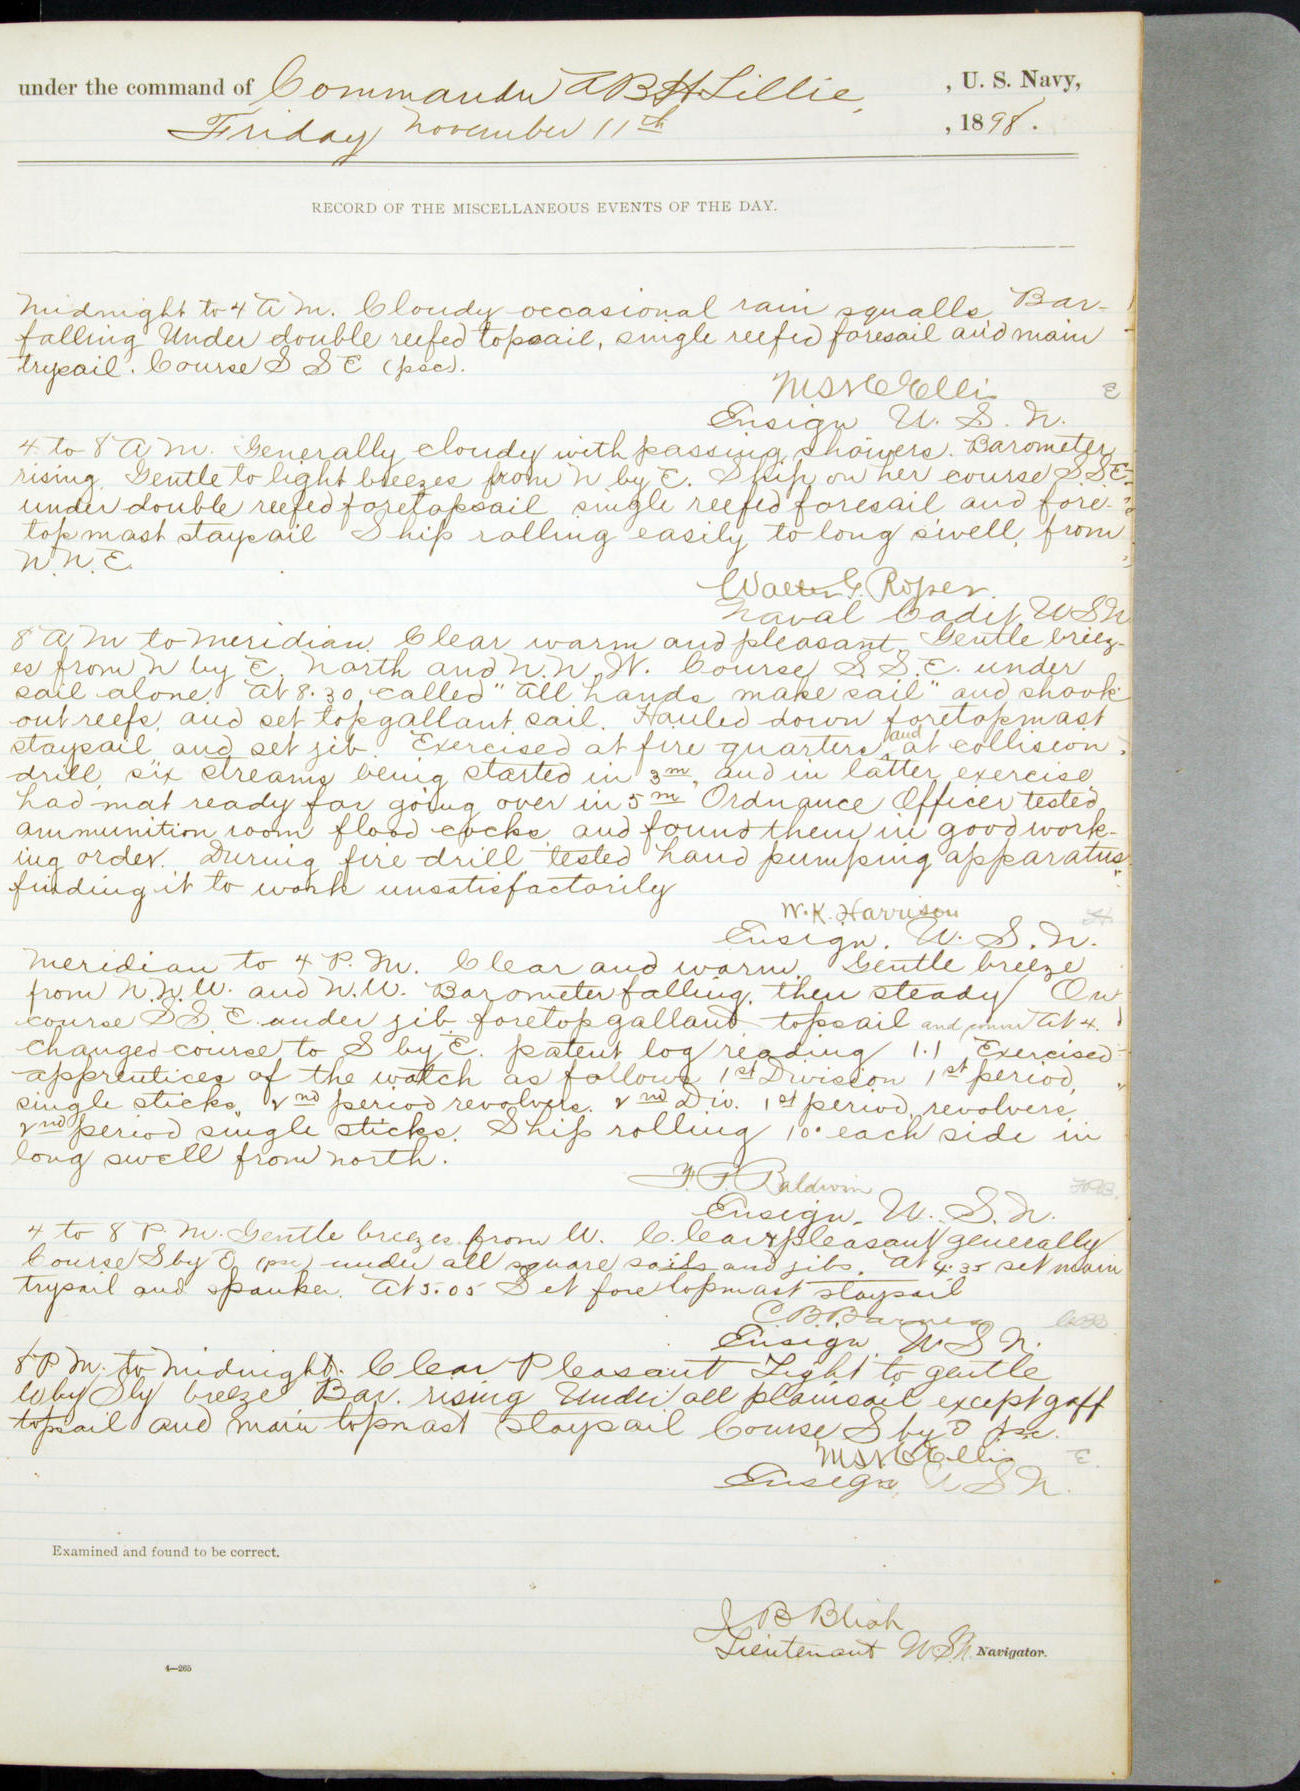 under the command of Commander A B H Lillie, , U. S. Navy,
Friday November 11th , 1898.
RECORD OF THE MISCELLANEOUS EVENTS OF THE DAY.
Midnight to 4 A M. Cloudy occasional rain squalls Bar-
falling Under double reefed topsail, single reefed foresail and main
trysail. Course S S E (psc).
E
Ensign U. S. N.
4 to 8 A M. Generally cloudy with passing showers. Barometer
rising. Gentle to light breezes from N by E. Ship on her course S.S.E.
under double reefed foretopsail single reefed foresail and fore-
topmast staysail Ship rolling easily to long swell from
N.N.E.
Walter G. Roper.
Naval Cadet, U S N
8 A M to Meridian. Clear warm and pleasant. Gentle breez-
es from N by E. North and N.N.W. Course S.S.E. under
sail alone. At 8.30 called "All hands make sail" and shook
out reefs, and set topgallant sail. Hauled down foretopmast
staysail and set jib. Exercised at fire quarters, and at collision
drill, six streams being started in 3m, and in latter exercise
had mat ready for going over in 5m Ordnance Officer tested
ammunition room flood cocks and found them in good work-
ing order. During fire drill tested hand pumping apparatus
finding it to work unsatisfactorily
W. K. Harrison H.
Ensign. U. S. N.
Meridian to 4 P. M. Clear and warm. Gentle breeze
from N.N.W. and N.W. Barometer falling, then steady On
course S S. E. under jib foretopgallant topsail and At 4.
changed course to S by E. patent log reading 1.1 Exercised
apprentices of the watch as follows 1st Division 1st period,
single sticks, 2nd period revolvers. 2nd Div. 1st period, revolvers,
2nd period single sticks. Ship rolling 10° each side in
long swell from north.
F. P. Baldwin FPB.
Ensign. U. S. N.
4 to 8 P. M. Gentle breezes from W. Clear & pleasant generally
Course S by E (psc) under all square sails and jibs. At 4.35 set main
trysail and spanker. At 5.05 Set fore topmast staysail
C. B. Barnes CBB
Ensign U S N.
8 P M. to Midnight. Clear Pleasant Light to gentle
W by S'ly breeze Bar. rising Under all plain sail except gaff
topsail and main topmast staysail Course S by E psc.
Ellis E.
Ensign, U S N.
Examined and found to be correct.
J B Blish
Lieutenant U.S.N. Navigator.
4—265